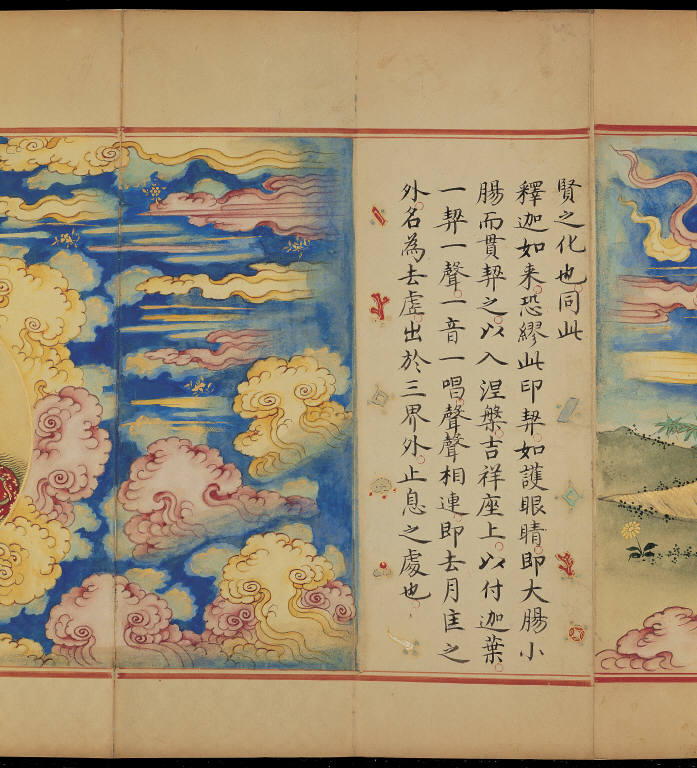 賢之化也同此
釋迦如来恐繆此印契如護眼睛即大腸小
腸而貫契之以入涅槃吉祥座上以付迦葉
一契一聲一音一唱聲聲相連即去月匡之
外名為去虛出於三界外止息之處也